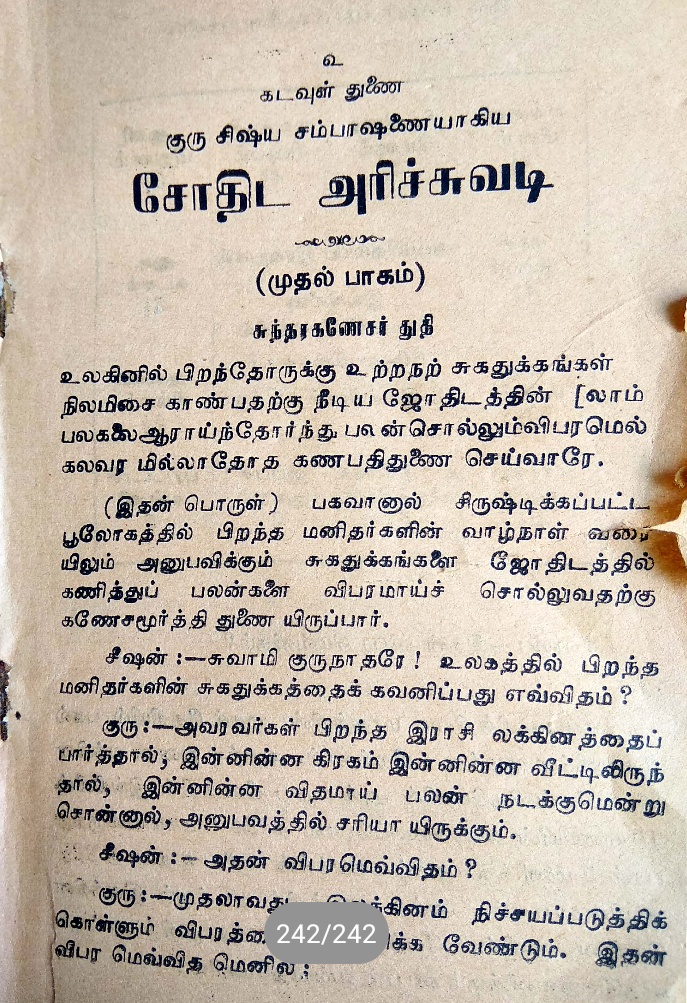 உ
கடவுள் துணை
குரு சிஷ்ய சம்பாஷணையாகிய
சோதிட அரிச்சுவடி
(முதல் பாகம்)
சுந்தரகணேசர் துதி
உலகினில் பிறந்தோருக்கு உற்றநற் சுகதுக்கங்கள்
நிலமிசை காண்பதற்கு நீடிய ஜோதிடத்தின் [லாம்
பலகலைஆராய்ந்தோர்ந்து பலன்சொல்லும்விபரமெல்
கலவர மில்லாதோத கணபதிதுணை செய்வாரே.
(இதன் பொருள்) பகவானால் சிருஷ்டிக்கப்பட்ட
பூலோகத்தில் பிறந்த மனிதர்களின் வாழ்நாள் வரை
யிலும் அனுபவிக்கும் சுகதுக்கங்களை ஜோதிடத்தில்
கணித்துப் பலன்களை விபரமாய்ச் சொல்லுவதற்கு
கணேசமூர்த்தி துணை யிருப்பார்.
சீஷன் :—சுவாமி குருநாதரே! உலகத்தில் பிறந்த
மனிதர்களின் சுகதுக்கத்தைக் கவனிப்பது எவ்விதம்?
குரு:—அவரவர்கள் பிறந்த இராசி லக்கினத்தைப்
பார்த்தால், இன்னின்ன கிரகம் இன்னின்ன வீட்டிலிருந்
தால், இன்னின்ன விதமாய் பலன் நடக்குமென்று
சொன்னால், அனுபவத்தில் சரியா யிருக்கும்.
சீஷன் :— அதன் விபரமெவ்விதம்?
குரு:—முதலாவது நிச்சயப்படுத்திக்
கொள்ளும் வேண்டும். இதன்
விபர மெவ்வித மெனில:
242/242